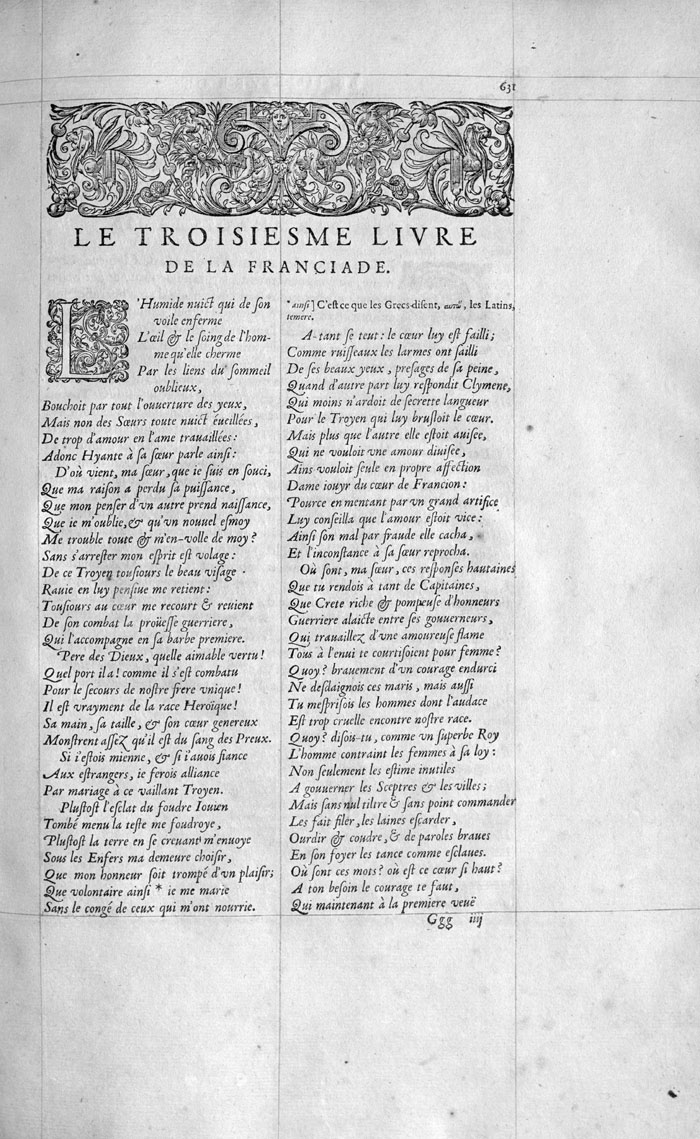 631
LE TROISIESME LIVRE
DE LA FRANCIADE.
L'Humide nuict qui de son
voile enferme
L'œil & le soing de l'hom-
me qu'elle cherme
Par les liens du sommeil
oublieux,
Bouchoit par tout l'ouuerture des yeux,
Mais non des Sœurs toute nuict éueillées,
De trop d'amour en l'ame trauaillées:
Adonc Hyante à sa sœur parle ainsi:
D'où vient, ma sœur, que ie suis en souci,
Que ma raison a perdu sa puissance,
Que mon penser d'vn autre prend naissance,
Que ie m'oublie, & qu'vn nouuel esmoy
Me trouble toute & m'en-volle de moy?
Sans s'arrester mon esprit est volage:
De ce Troyen tousiours le beau visage
Rauie en luy pensiue me retient:
Tousiours au cœur me recourt & reuient
De son combat la proüesse guerriere,
Qui l'accompagne en sa barbe premiere.
Pere des Dieux, quelle aimable vertu!
Quel port il a! comme il s'est combatu
Pour le secours de nostre frere vnique!
Il est vrayment de la race Heroïque!
Sa main, sa taille, & son cœur genereux
Monstrent assez qu'il est du sang des Preux.
Si i'estois mienne, & si i'auois fiance
Aux estrangers, ie ferois alliance
Par mariage à ce vaillant Troyen.
Plustost l'esclat du foudre Iouien
Tombé menu la teste me foudroye,
Plustost la terre en se creuant m'enuoye
Sous les Enfers ma demeure choisir,
Que mon honneur soit trompé d'vn plaisir;
Que volontaire ainsi * ie me marie
Sans le congé de ceux qui m'ont nourrie.
* ainsi] C'est ce que les Grecs disent, les Latins,
temere.
A-tant se teut: le cœur luy est failli;
Comme ruisseaux les larmes ont sailli
De ses beaux yeux, presages de sa peine,
Quand d'autre part luy respondit Clymene,
Qui moins n'ardoit de secrette langueur
Pour le Troyen qui luy brusloit le cœur.
Mais plus que l'autre elle estoit auisee,
Qui ne vouloit vne amour diuisee,
Ains vouloit seule en propre affection
Dame iouyr du cœur de Francion:
Pource en mentant par vn grand artifice
Luy conseilla que l'amour estoit vice:
Ainsi son mal par fraude elle cacha,
Et l'inconstance à sa sœur reprocha.
Où sont, ma sœur, ces responses hautaines
Que tu rendois à tant de Capitaines,
Que Crete riche & pompeuse d'honneurs
Guerriere alaicte entre ses gouuerneurs,
Qui trauaillez d'vne amoureuse flame
Tous à l'enui te courtisoient pour femme?
Quoy? brauement d'vn courage endurci
Ne desdaignois ces maris, mais aussi
Tu mesprisois les hommes dont l'audace
Est trop cruelle encontre nostre race.
Quoy? disou-tu, comme vn superbe Roy
L'homme contraint les femmes à sa loy:
Non seulement les estime inutiles
A gouuerner les Sceptres & les villes;
Mais sans nul tiltre & sans point commander
Les fait filer, les laines escarder,
Ourdir & coudre, & de paroles braues
En son foyer les tance comme esclaues.
Où sont ces mots? où est ce cœur si haut?
A ton besoin le courage te faut,
Qui maintenant à la premiere veuë
Ggg iiij